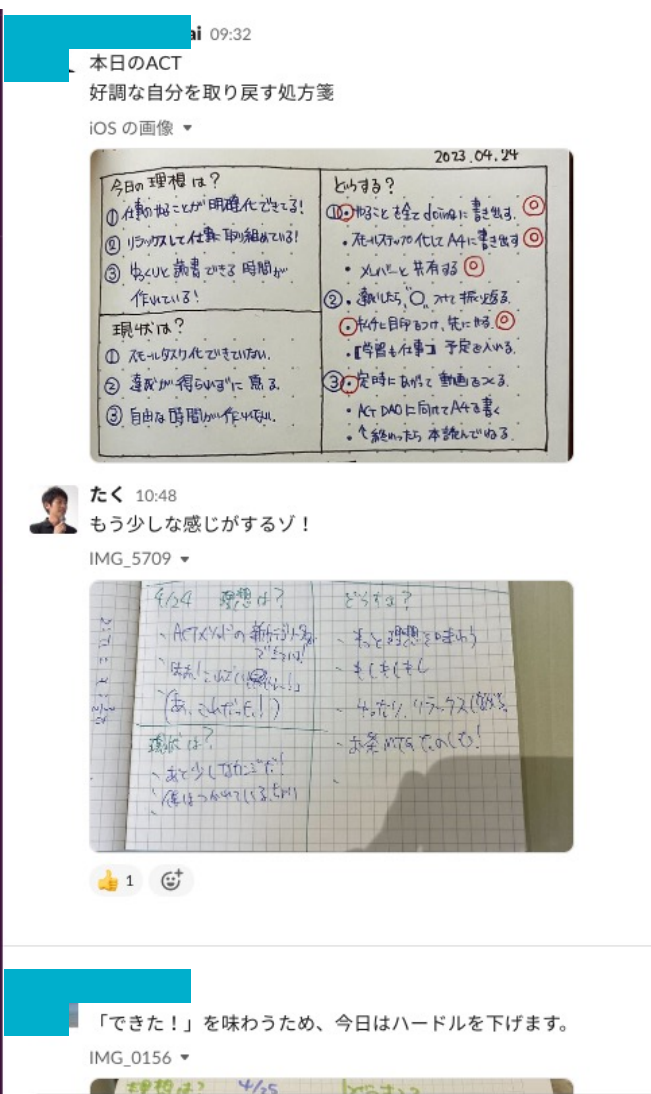 ai 09:32
本日のACT
好調な自分を取り戻す処方箋
iOS の画像
2023.04.24
今日の理想は?
①仕事のやることが明確化できてる!
②リラックスして仕事に取り組めている!
③ゆっくりと読書できる時間が
作れている!
現状は?
①スモールタスク化できていない。
②達成が得られずに焦る。
③自由な時間が作れない。
どうする?
①・やることを全てdoingに書き出す。
・スモールステップ化してA4に書き出す
・メンバーと共有する
②・達成したら、"○"つけて振り返る。
・「学習も仕事」予定を入れる。
③・定時にあがって動画をつくる。
・ACT DAOに向けてA4を書く
・↑終わったら本読んでねる。
たく 10:48
もう少しな感じがするゾ!
IMG_5709
4/24 理想は?
(あ、これだった!)
現状は?
、あと少しなカンジだ!
どうする?
、もっと理想を味わう
、もくもくもく
、お茶MTGたのしむ!
1
「できた!」を味わうため、今日はハードルを下げます。
IMG_0156
理想は? 4/25 どうする?